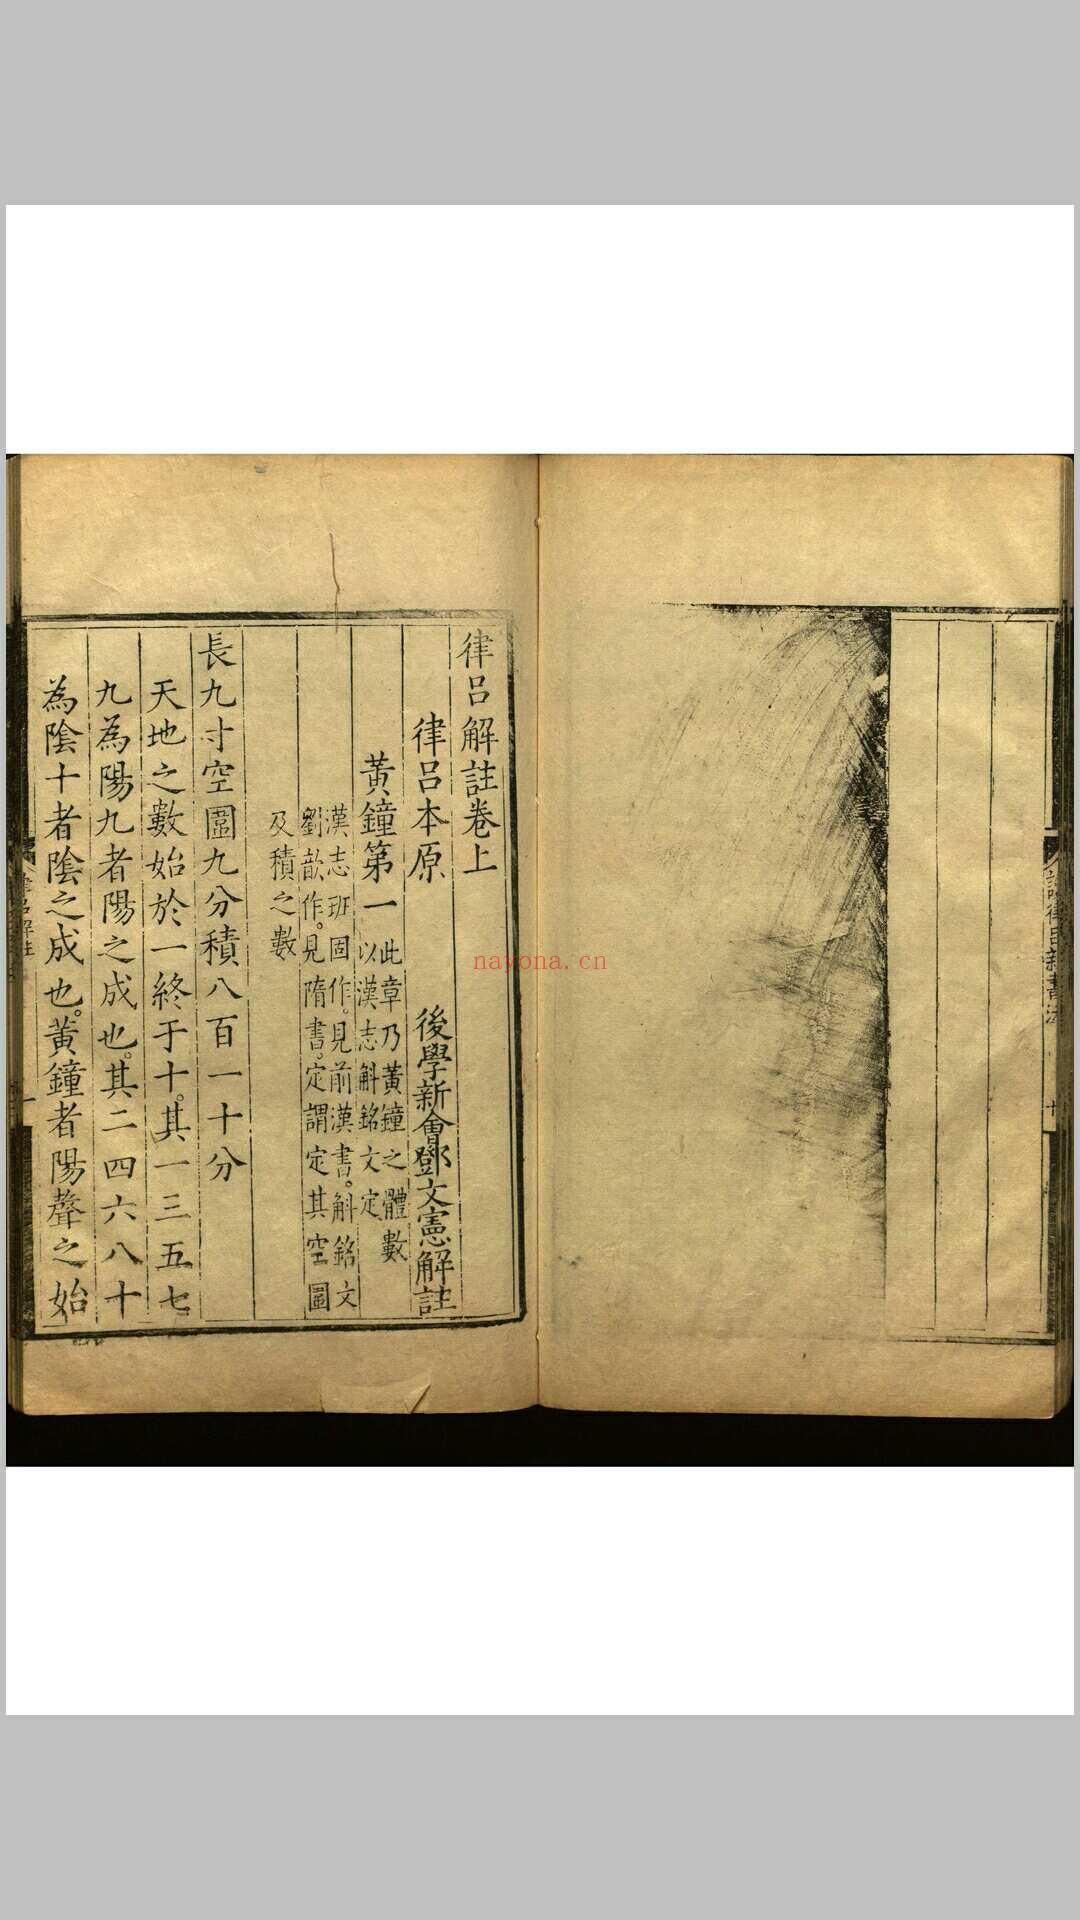 律呂解註卷上
律呂本原
後學新會鄧文憲解註
黃鐘第一
此章乃黃鐘之體數
以漢志斛銘文定
漢志班固作。見前漢書。斛銘文
劉歆作。見隋書。定謂定其空圍
及積之數
長九寸空圍九分積八百一十分
天地之數始於一終于十。其一三五七
九為陽九者陽之成也。其二四六八十
為陰十者陰之成也。黃鐘者陽聲之始
律呂解註
一
律呂新書
nayona.cn